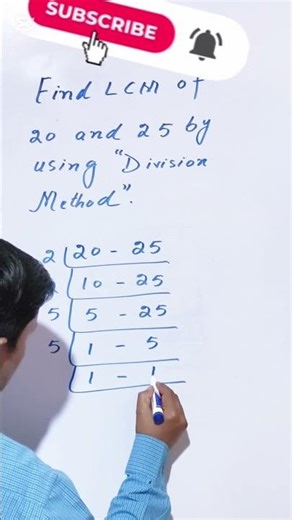 SUBSCRIBE
Find LCM of
20 and 25 by
using "Division
Method".
2 | 20 - 25
10 - 25
5 | 5 - 25
5 | 1 - 5
1 - 1